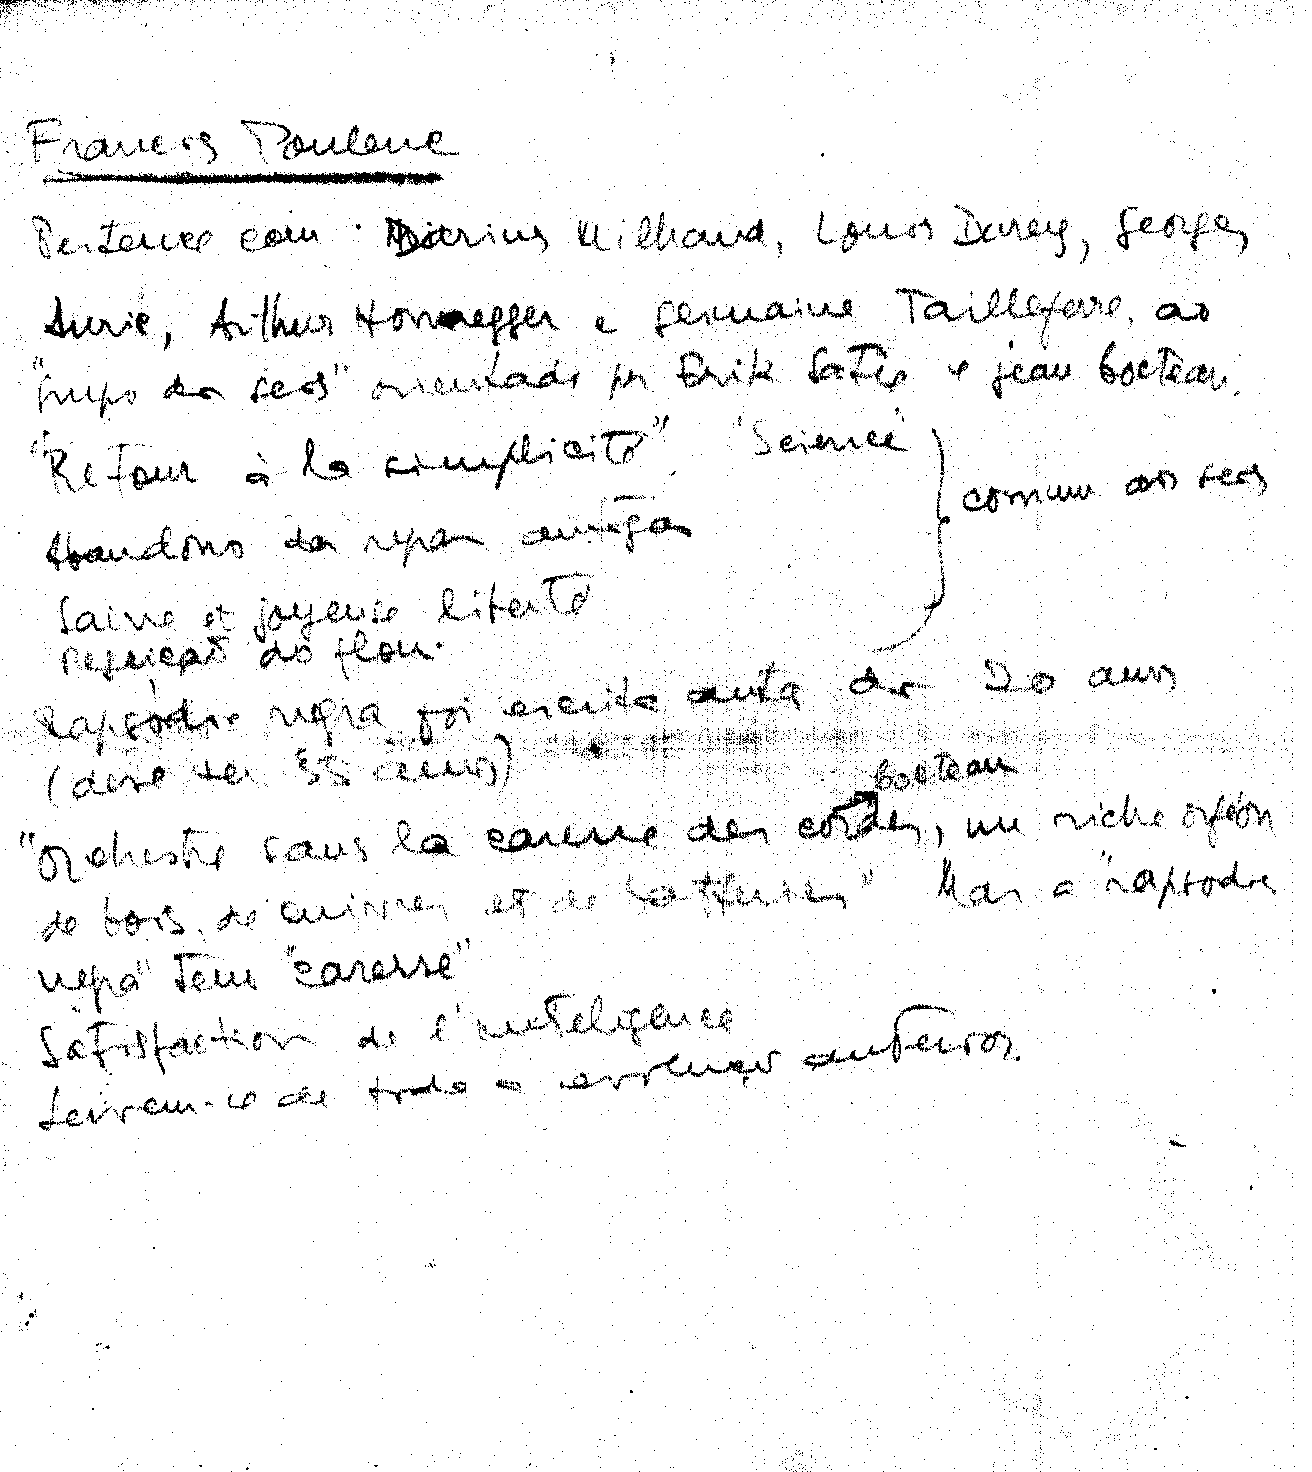 Francis Poulenc
Pertence com Darius Milhaud, Louis Durey, Georges
Auric, Arthur Honnegger e Germaine Tailleferre, ao
"grupo dos seis" orientado por Erik Satie e Jean Cocteau.
"Retour à la simplicité". "Science"
comum aos seis
Abandono das regras antigas
Saine et joyeuse liberté
do flou.
Rapsódia negra foi escrita antes dos 20 anos
(deve ter 35 anos)
Cocteau
"Orchestre sans la caresse des cordes, un riche orféon
de bois, de cuivres et de batteries" Mas a "rapsodia
negra" tem "caresse"
Satisfaction de l'inteligence
Servem-se de toda a evolução anterior.